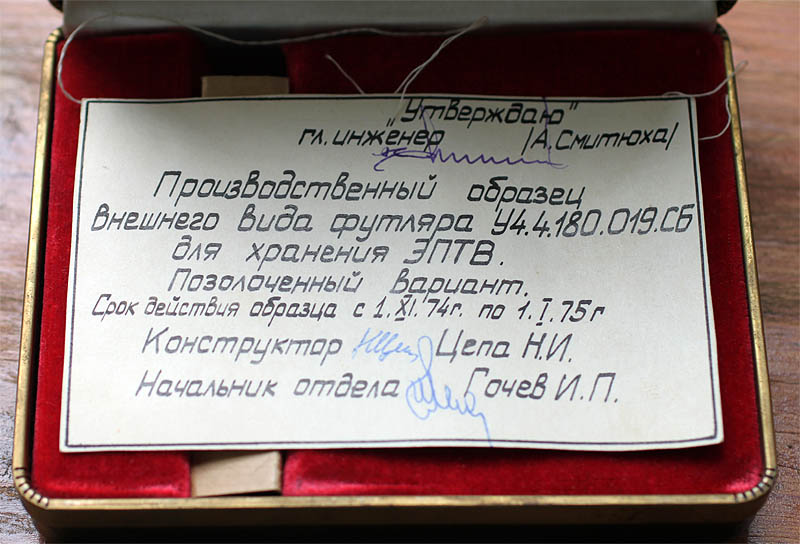 „Утверждаю"
гл. инженер /А. Смитюха/
Производственный образец
внешнего вида футляра У4.4.180.019.СБ
для хранения ЭПТВ.
Позолоченный вариант.
Срок действия образца с 1.XI.74г. по 1.I.75г
Конструктор Цепа Н.И.
Начальник отдела Гочев И.П.